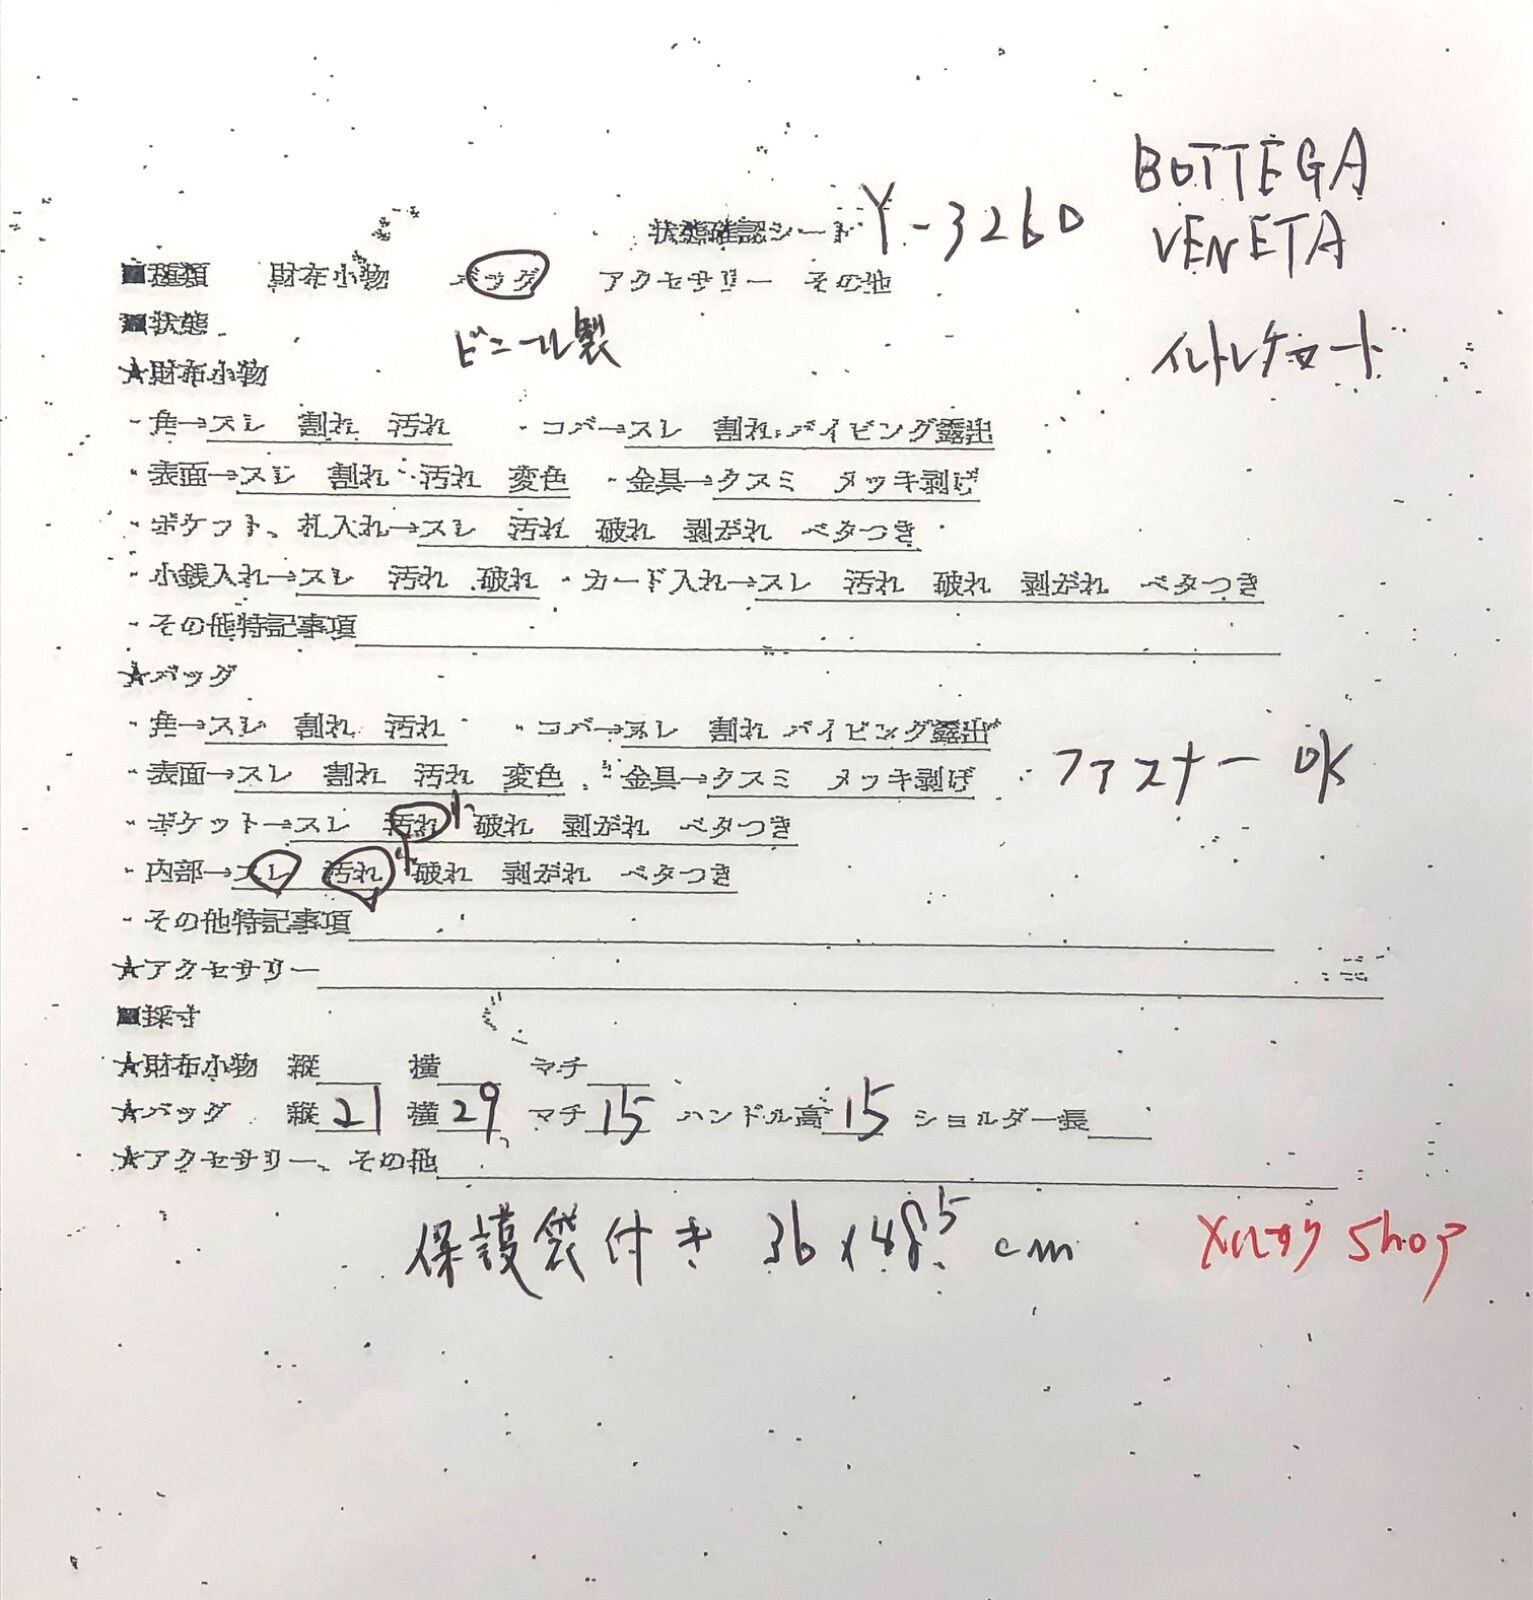 BOTTEGA
VENETA
状態確認シート Y-3260
■種類 財布小物 バッグ アクセサリー その他
■状態 ビニール製
★財布小物
・角→スレ 割れ 汚れ ・コバ→スレ 割れ パイピング露出
・表面→スレ 割れ 汚れ 変色 ・金具→クスミ メッキ剥げ
・ポケット、札入れ→スレ 汚れ 破れ 剥がれ ベタつき
・小銭入れ→スレ 汚れ 破れ ・カード入れ→スレ 汚れ 破れ 剥がれ ベタつき
・その他特記事項
★バッグ
・角→スレ 割れ 汚れ ・コバ→スレ 割れ パイピング露出
・表面→スレ 割れ 汚れ 変色 ・金具→クスミ メッキ剥げ ファスナー OK
・ポケット→スレ 汚れ 小 破れ 剥がれ ベタつき
・内部→スレ 汚れ 小 破れ 剥がれ ベタつき
・その他特記事項
★アクセサリー
■採寸
★財布小物 縦 横 マチ
★バッグ 縦 21 横 29 マチ 15 ハンドル高 15 ショルダー長
★アクセサリー、その他
保護袋付き 36×48.5 cm
shop